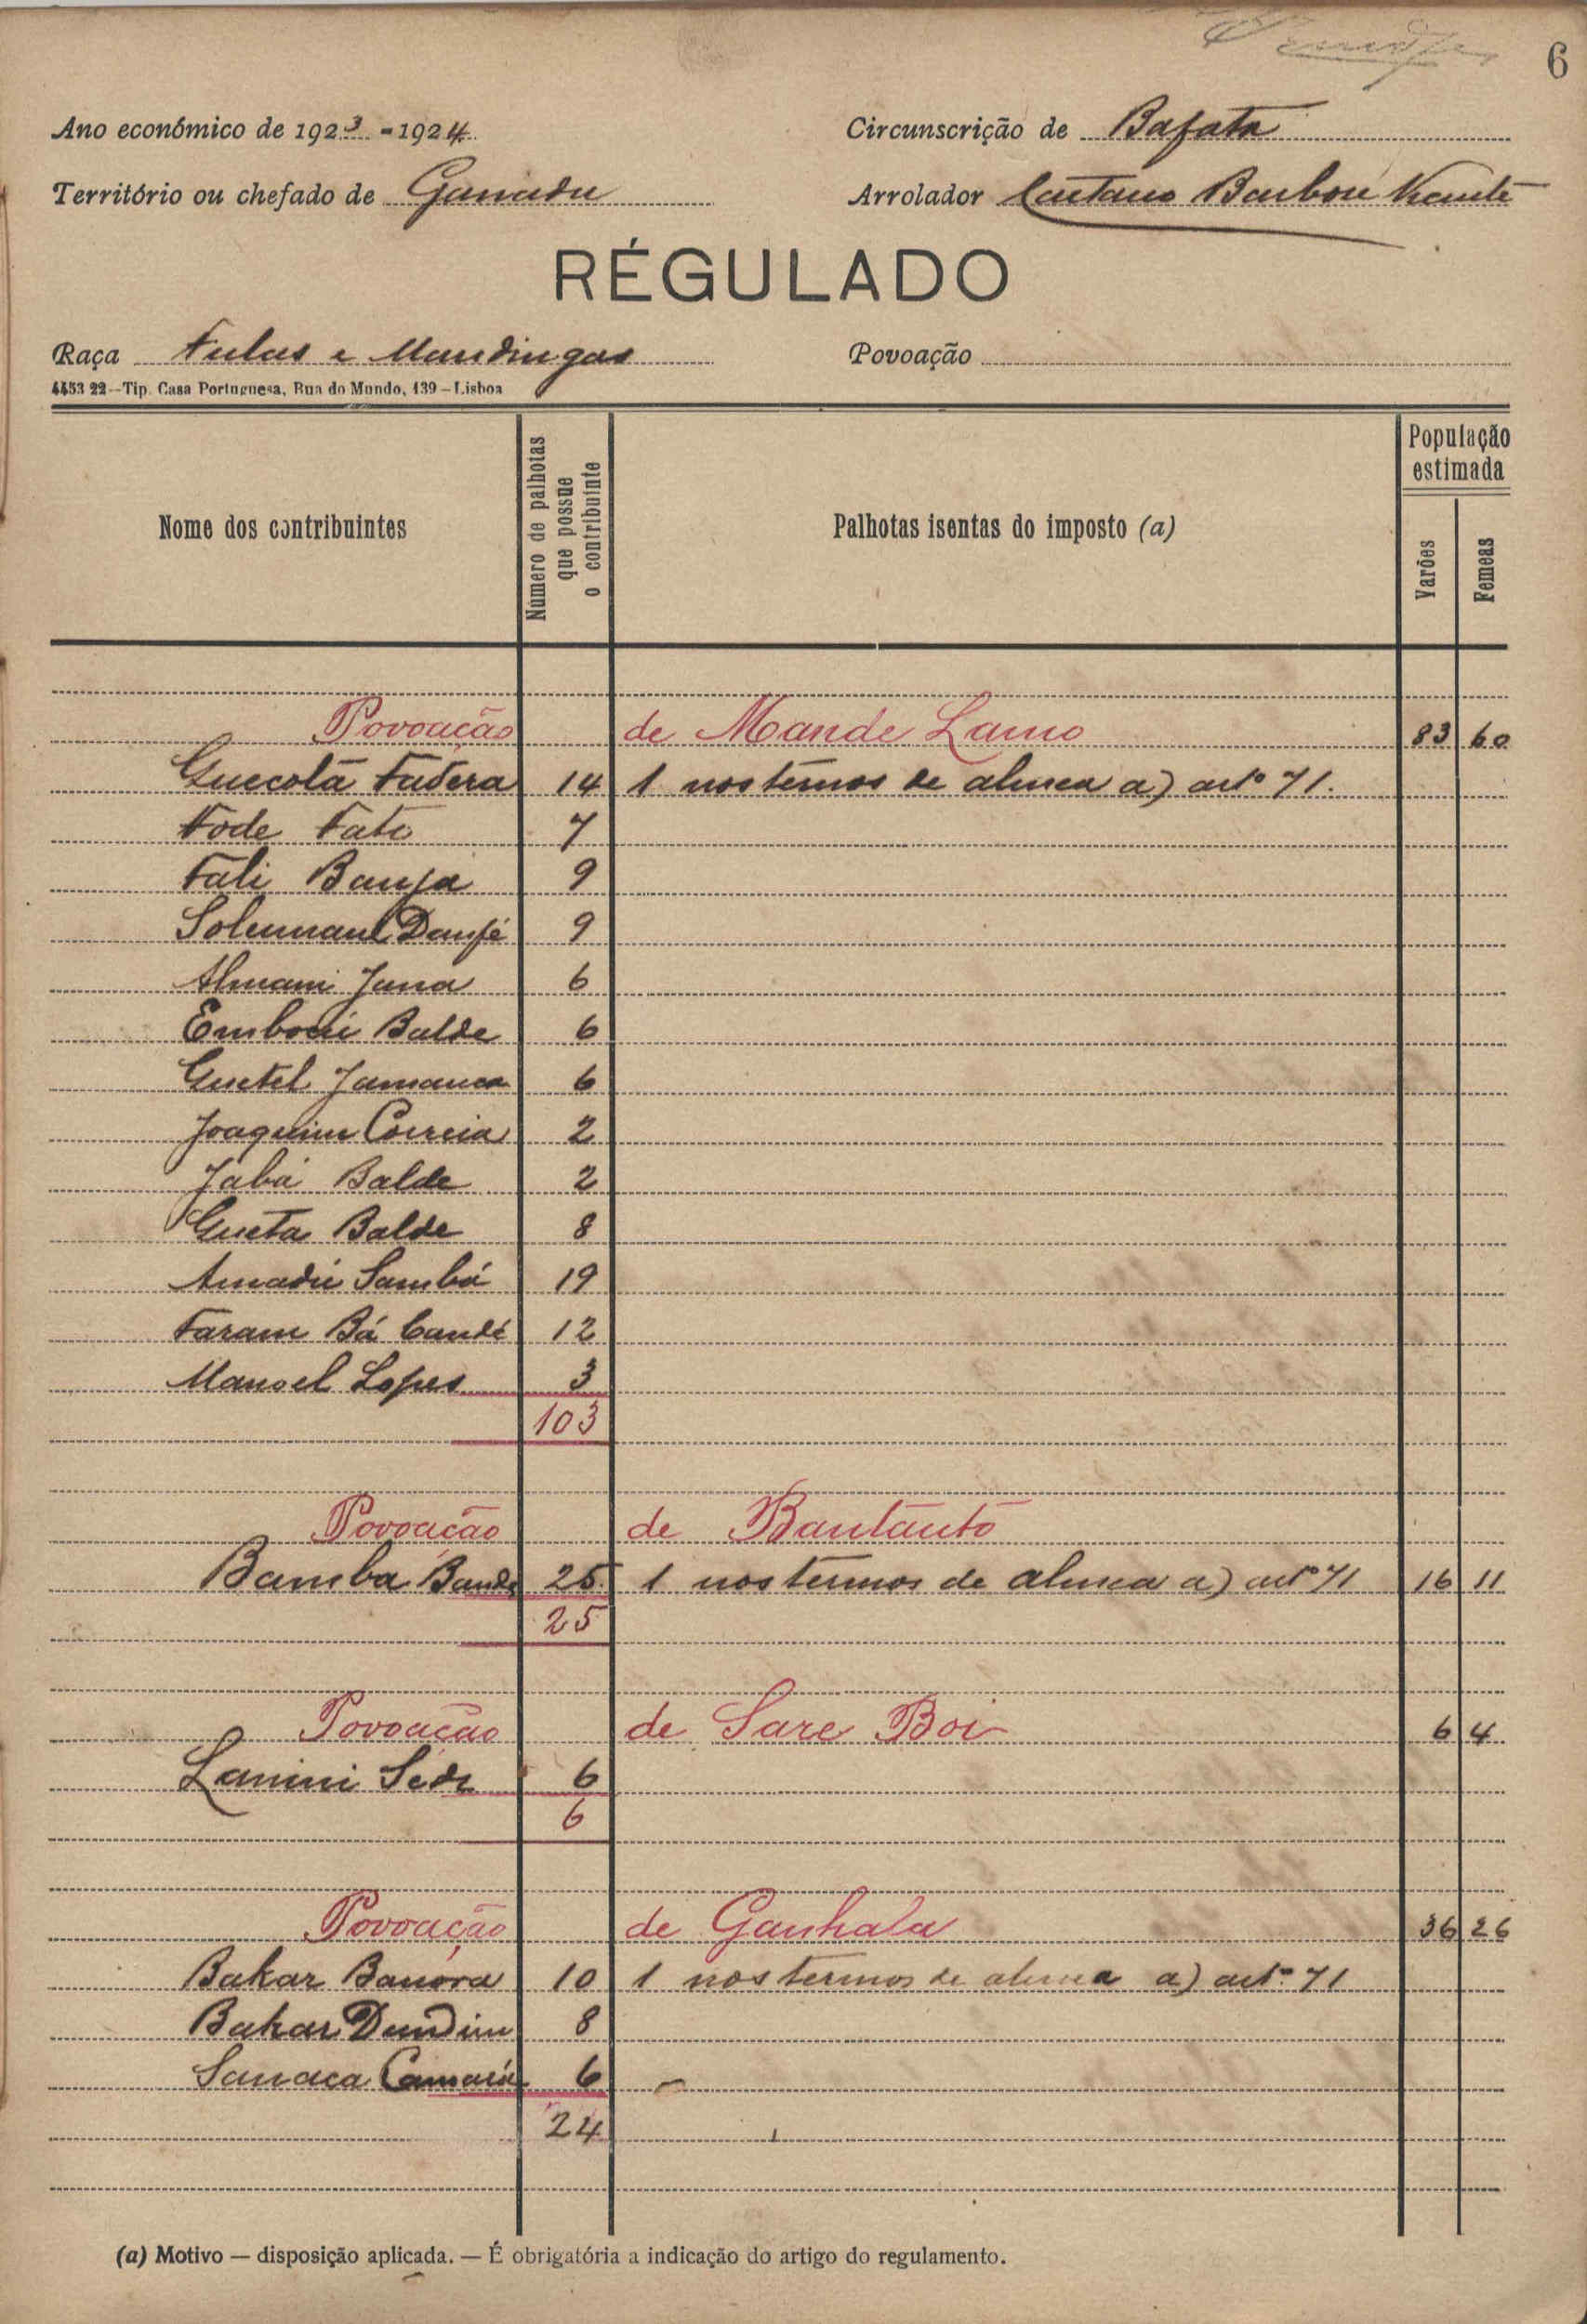 6
Ano económico de 1923-1924. Circunscrição de Bafata
Território ou chefado de Ganadu Arrolador Caetano Barbosa Vicente
RÉGULADO
Raça Fulas e Mandingas Povoação
4453 22--Tip. Casa Portuguesa, Rua do Mundo, 139-Lisboa
Nome dos contribuintes Número de palhotas que possue o contribuinte Palhotas isentas do imposto (a) População estimada Varões Femeas
Povoação de Mande Lamo 83 60
Guecolá Fadera 14 1 nos têrmos de alinea a) artº 71.
Fode Fati 7
Fali Banja 9
Soleimane Danfé 9
Almami Juna 6
Embori Balde 6
Guetel Jamanca 6
Joaquim Correia 2
Jabú Balde 2
Gueta Balde 8
Amadú Sambú 19
Faram Bá Candé 12
Manoel Lopes 3
103
Povoação de Bantantó
Bamba Bande 25 1 nos termos de alinea a) artº 71 16 11
25
Povoação de Sare Boi 6 4
Lamini Sede 6
6
Povoação de Ganhala 36 26
Bakar Banora 10 1 nos termos de alinea a) artº 71
Bakar Dundim 8
Sanaca Camará 6
24
(a) Motivo — disposição aplicada. — É obrigatória a indicação do artigo do regulamento.